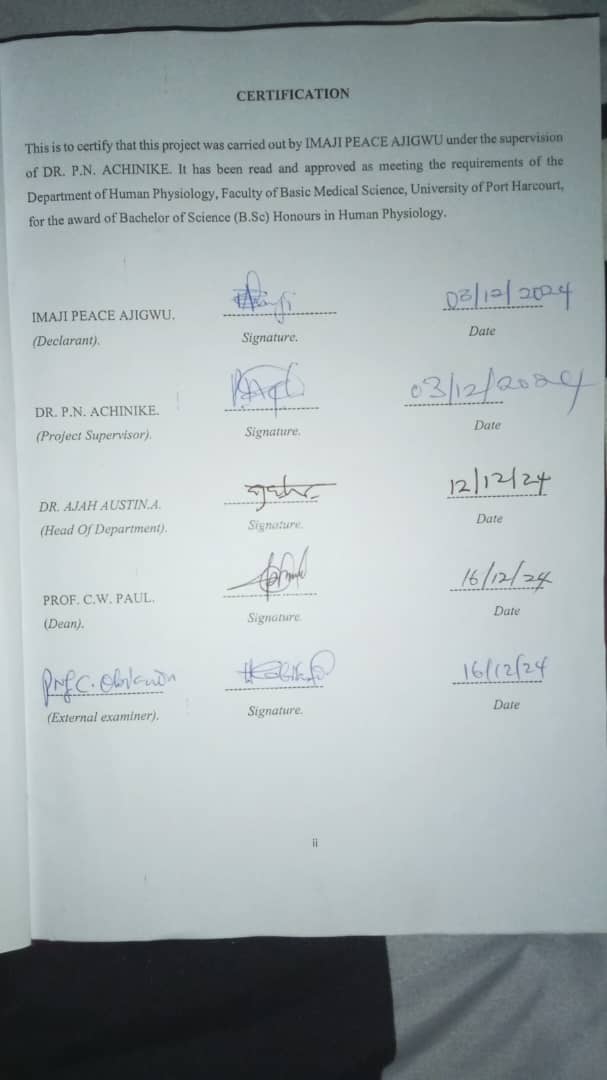 CERTIFICATION
This is to certify that this project was carried out by IMAJI PEACE AJIGWU under the supervision
of DR. P.N. ACHINIKE. It has been read and approved as meeting the requirements of the
Department of Human Physiology, Faculty of Basic Medical Science, University of Port Harcourt,
for the award of Bachelor of Science (B.Sc) Honours in Human Physiology.
03/12/2024
IMAJI PEACE AJIGWU.
(Declarant). Signature. Date
03/12/2024
DR. P.N. ACHINIKE.
(Project Supervisor). Signature. Date
12/12/24
DR. AJAH AUSTIN.A.
(Head Of Department). Signature. Date
16/12/24
PROF. C.W. PAUL.
(Dean). Signature. Date
Prof C. 16/12/24
(External examiner). Signature. Date
ii